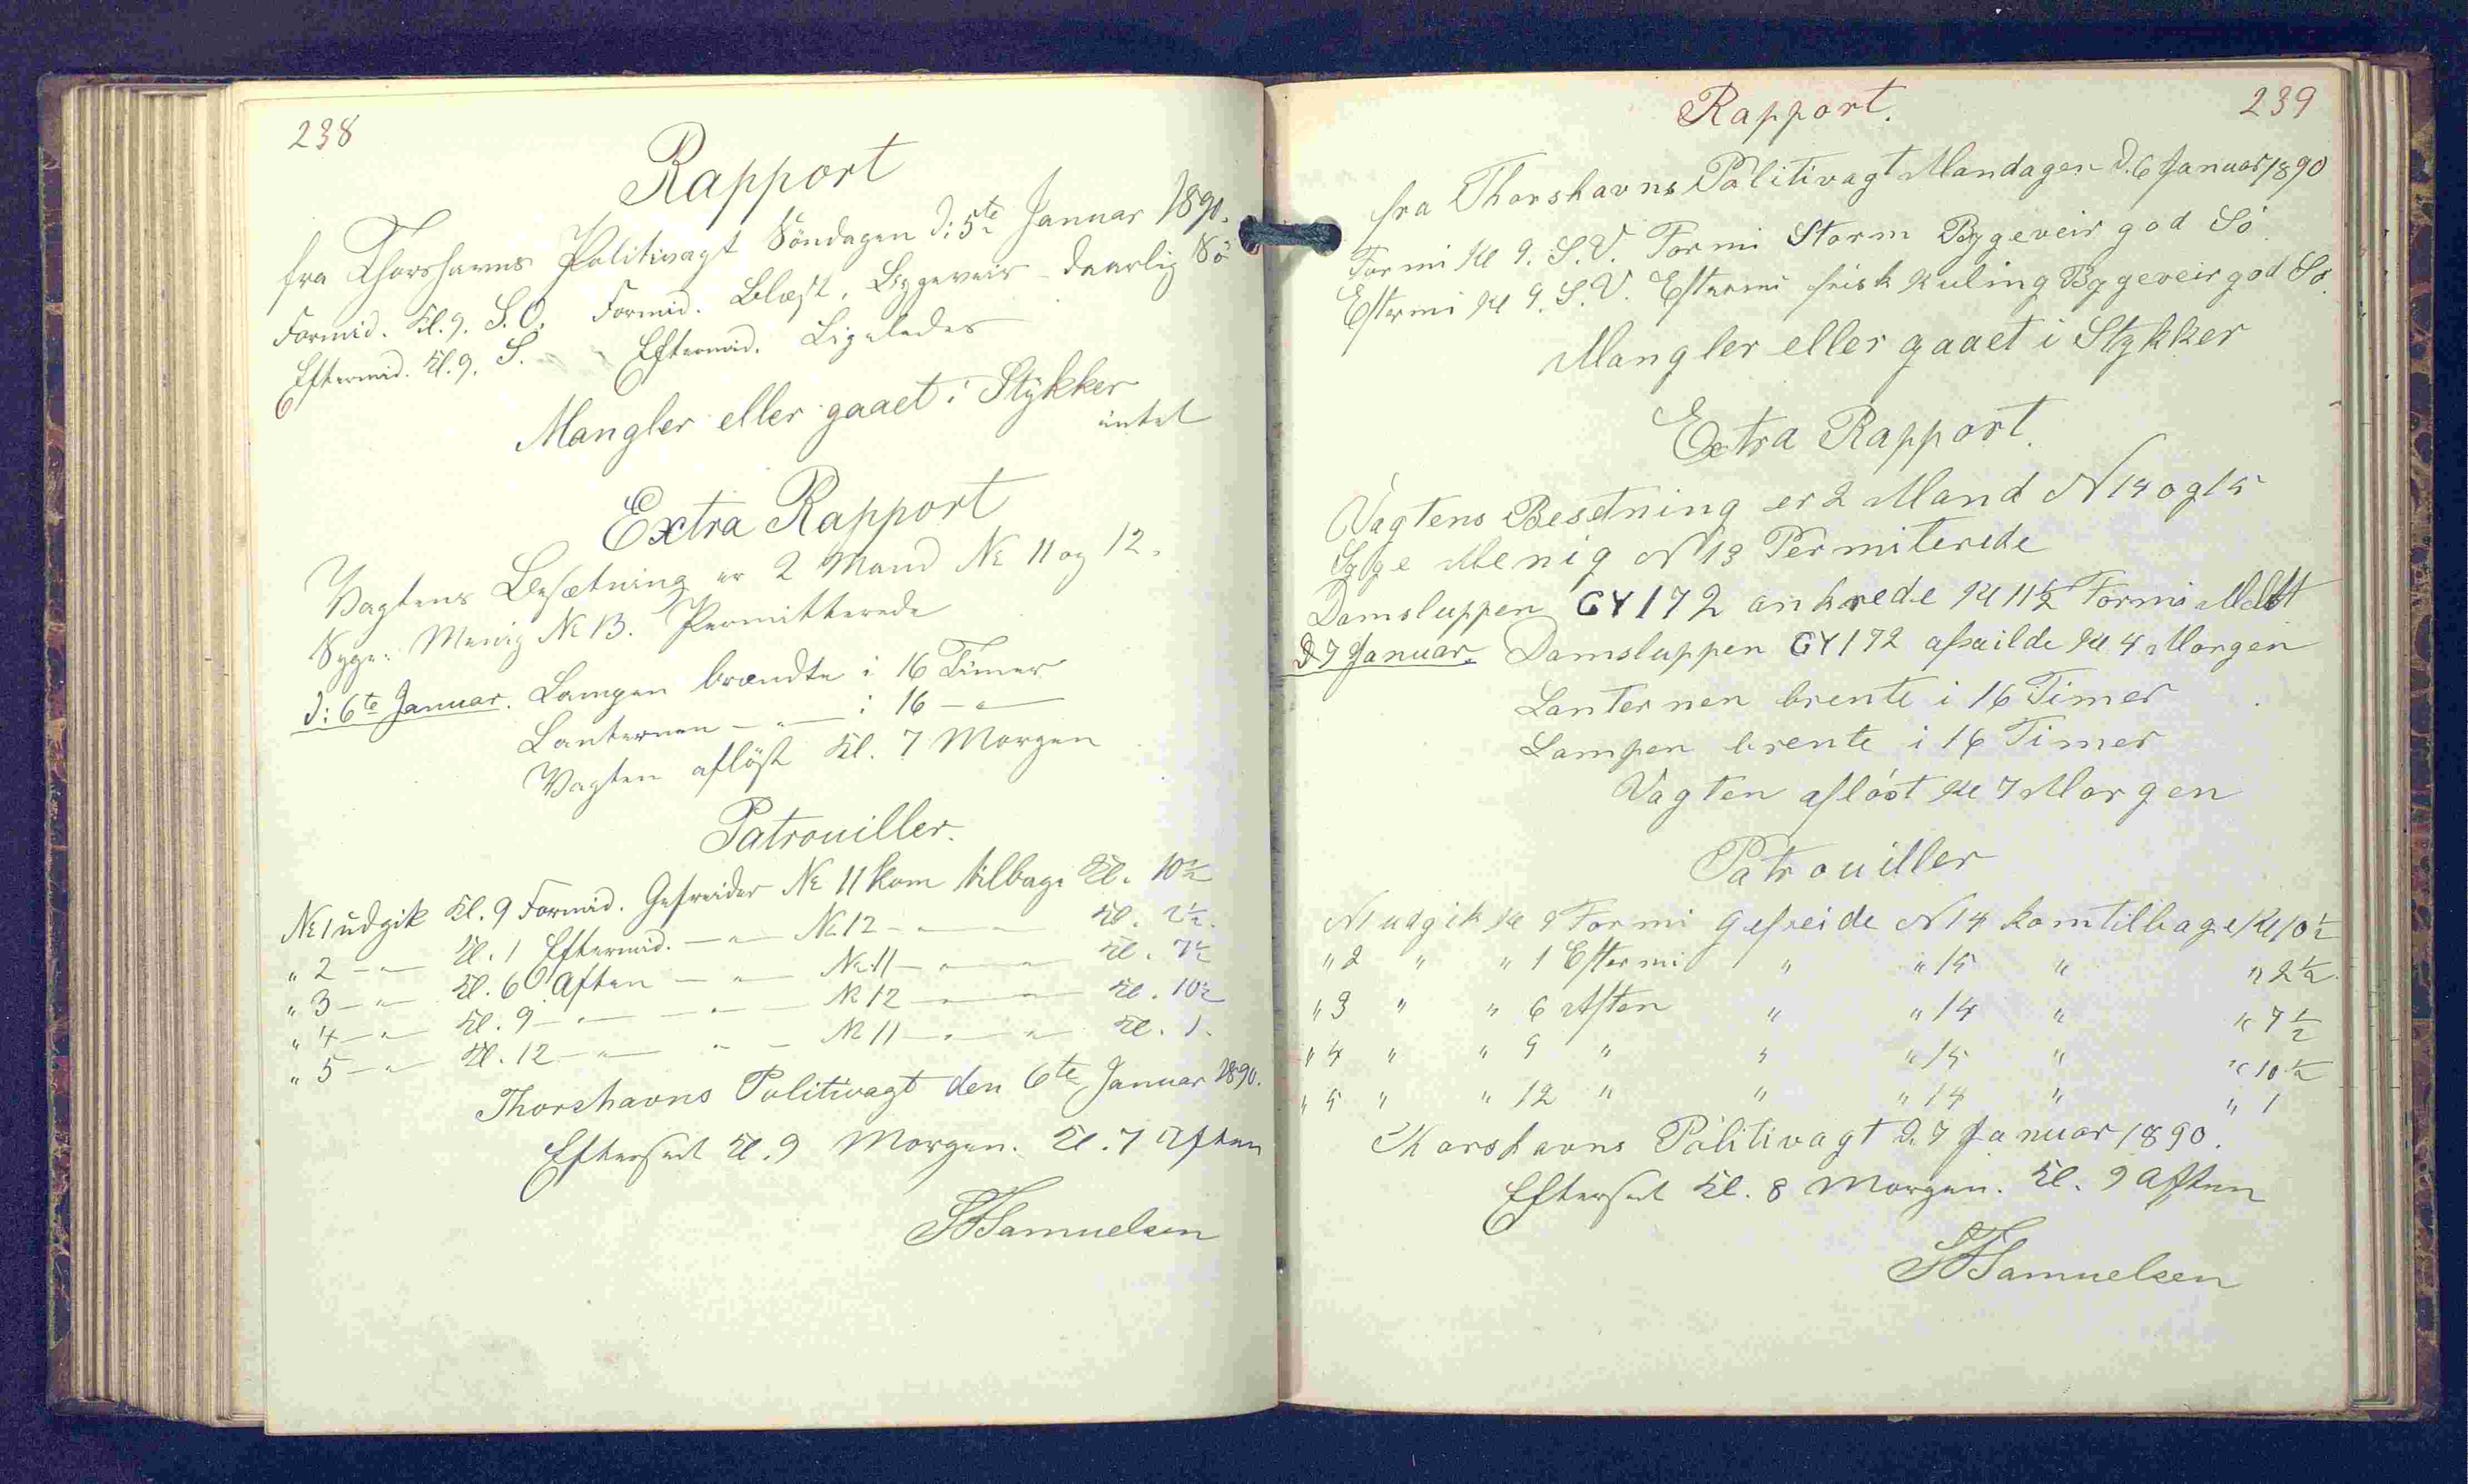 238
Rapport
fra Thorshavns Politivagt Söndagen d: 5te Januar 1890.
Formid. Kl. 9. S.O. Formid. Blæst, Bygeveir - daarlig Sö
Eftermid. Kl. 9. S. Eftermid. Ligeledes
Mangler eller gaaet i Stykker
intet
Extra Rapport
Vagtens Besætning er 2 Mand № 11 og 12.
Syge: Menig № 13. Permitterede
d: 6te Januar. Lampen brændte i 16 Timer
Lanternen — " — i 16 — " —
Vagten aflöst Kl. 7 Morgen
Patrouiller.
№ 1 udgik Kl. 9 Formid. Gefreider № 11 kom tilbage Kl. 10½
" 2 — " — Kl. 1 Eftermid. — " — № 12 — " — " — Kl. 2½.
" 3 — " — Kl. 6 Aften — " — № 11 — " — " — Kl. 7½
" 4 — " — Kl. 9 — " — — " — № 12 — " — " — Kl. 10½
" 5 — " — Kl. 12 — " — " — № 11 — " — " — Kl. 1.
Thorshavns Politivagt den 6te Januar 1890.
Efterseet Kl. 9 Morgen. Kl. 7 Aften
Samuelsen
239
Rapport.
fra Thorshavns Politivagt Mandagen d. 6 Januar 1890
Formi Kl 9. S.V. Formi Storm Bygeveir god Sö
Eftermi Kl 9. S.V. Eftermi frisk Kuling Bygeveir god Sö.
Mangler eller gaaet i Stykker
Extra Rapport.
Vagtens Besetning er 2 Mand N 14 og 15
Syge Menig N 13 Permiterede
Damsluppen GY 172 ankrede Kl 11½ Formi
D 7 Januar. Damsluppen GY 172 afsailde Kl 4 Morgen
Lanternen brente i 16 Timer
Lampen brente i 16 Timer
Vagten aflöst Kl 7 Morgen
Patrouiller
N 1 udgik Kl 9 Formi gefreide N 14 kom tilbage Kl 10½
" 2 " " 1 Eftermi " " 15 " " 2½.
" 3 " " 6 Aften " " 14 " " 7½
" 4 " " 9 " " " 15 " " 10½
" 5 " " 12 " " " 14 " " 1
Thorshavns Politivagt D. 7 Januar 1890.
Efterseet Kl. 8 Morgen. Kl. 9 Aften
Samuelsen